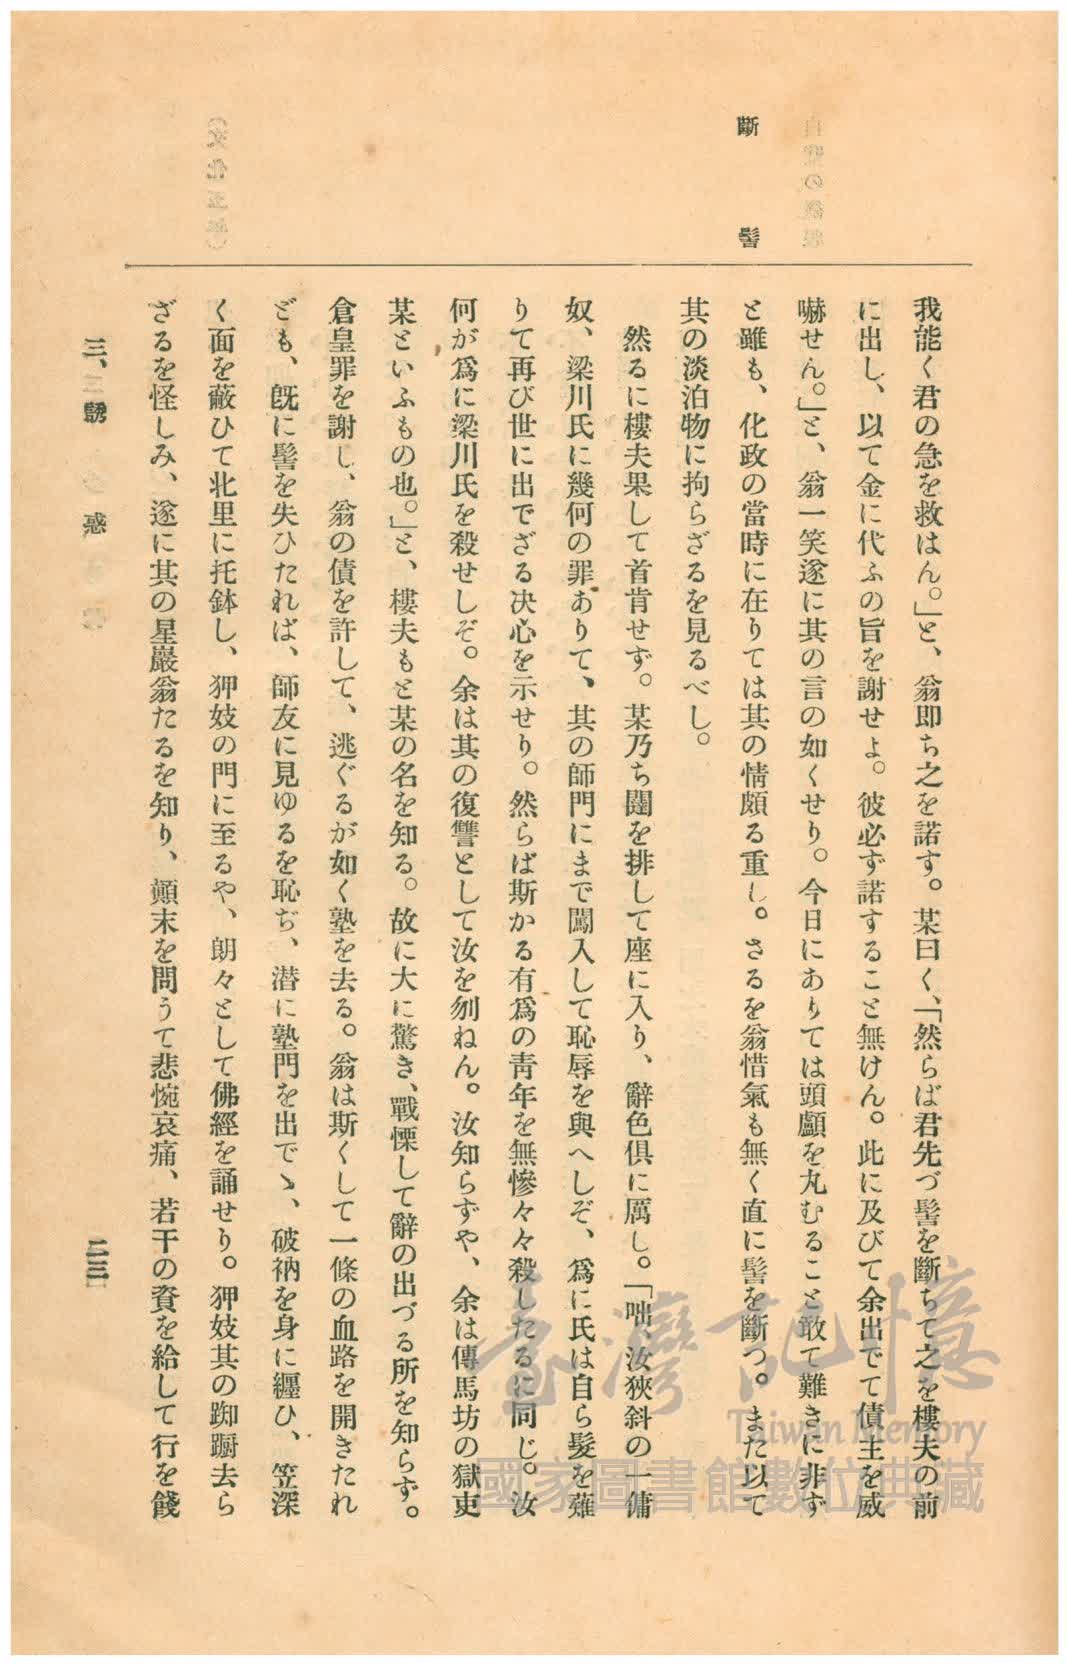 斷髻
我能く君の急を救はん。」と、翁即ち之を諾す。某曰く、「然らば君先づ髻を斷ちて之を樓夫の前
に出し、以て金に代ふの旨を謝せよ。彼必ず諾すること無けん。此に及びて余出でて債主を威
嚇せん。」と、翁一笑遂に其の言の如くせり。今日にありては頭顱を丸むること敢て難きに非ず
と雖も、化政の當時に在りては其の情頗る重し。さるを翁惜氣も無く直に髻を斷つ。また以て
其の淡泊物に拘らざるを見るべし。
然るに樓夫果して首肯せず。某乃ち闥を排して座に入り、辭色倶に厲し。「咄、汝狹斜の一傭
奴、梁川氏に幾何の罪ありて、其の師門にまで闖入して恥辱を與へしぞ、爲に氏は自ら髮を薙
りて再び世に出でざる決心を示せり。然らば斯かる有爲の靑年を無慘々々殺したるに同じ。汝
何が爲に梁川氏を殺せしぞ。余は其の復讐として汝を刎ねん。汝知らずや、余は傳馬坊の獄吏
某といふもの也。」と、樓夫もと某の名を知る。故に大に驚き、戰慄して辭の出づる所を知らず。
倉皇罪を謝し、翁の債を許して、逃ぐるが如く塾を去る。翁は斯くして一條の血路を開きたれ
ども、旣に髻を失ひたれば、師友に見ゆるを恥ぢ、潜に塾門を出でゝ、破衲を身に纒ひ、笠深
く面を蔽ひて北里に托鉢し、狎妓の門に至るや、朗々として佛經を誦せり。狎妓其の踟蹰去ら
ざるを怪しみ、遂に其の星巖翁たるを知り、顚末を問うて悲惋哀痛、若干の資を給して行を餞
三、誘惑
二三
臺灣記憶
Taiwan Memory
國家圖書館數位典藏